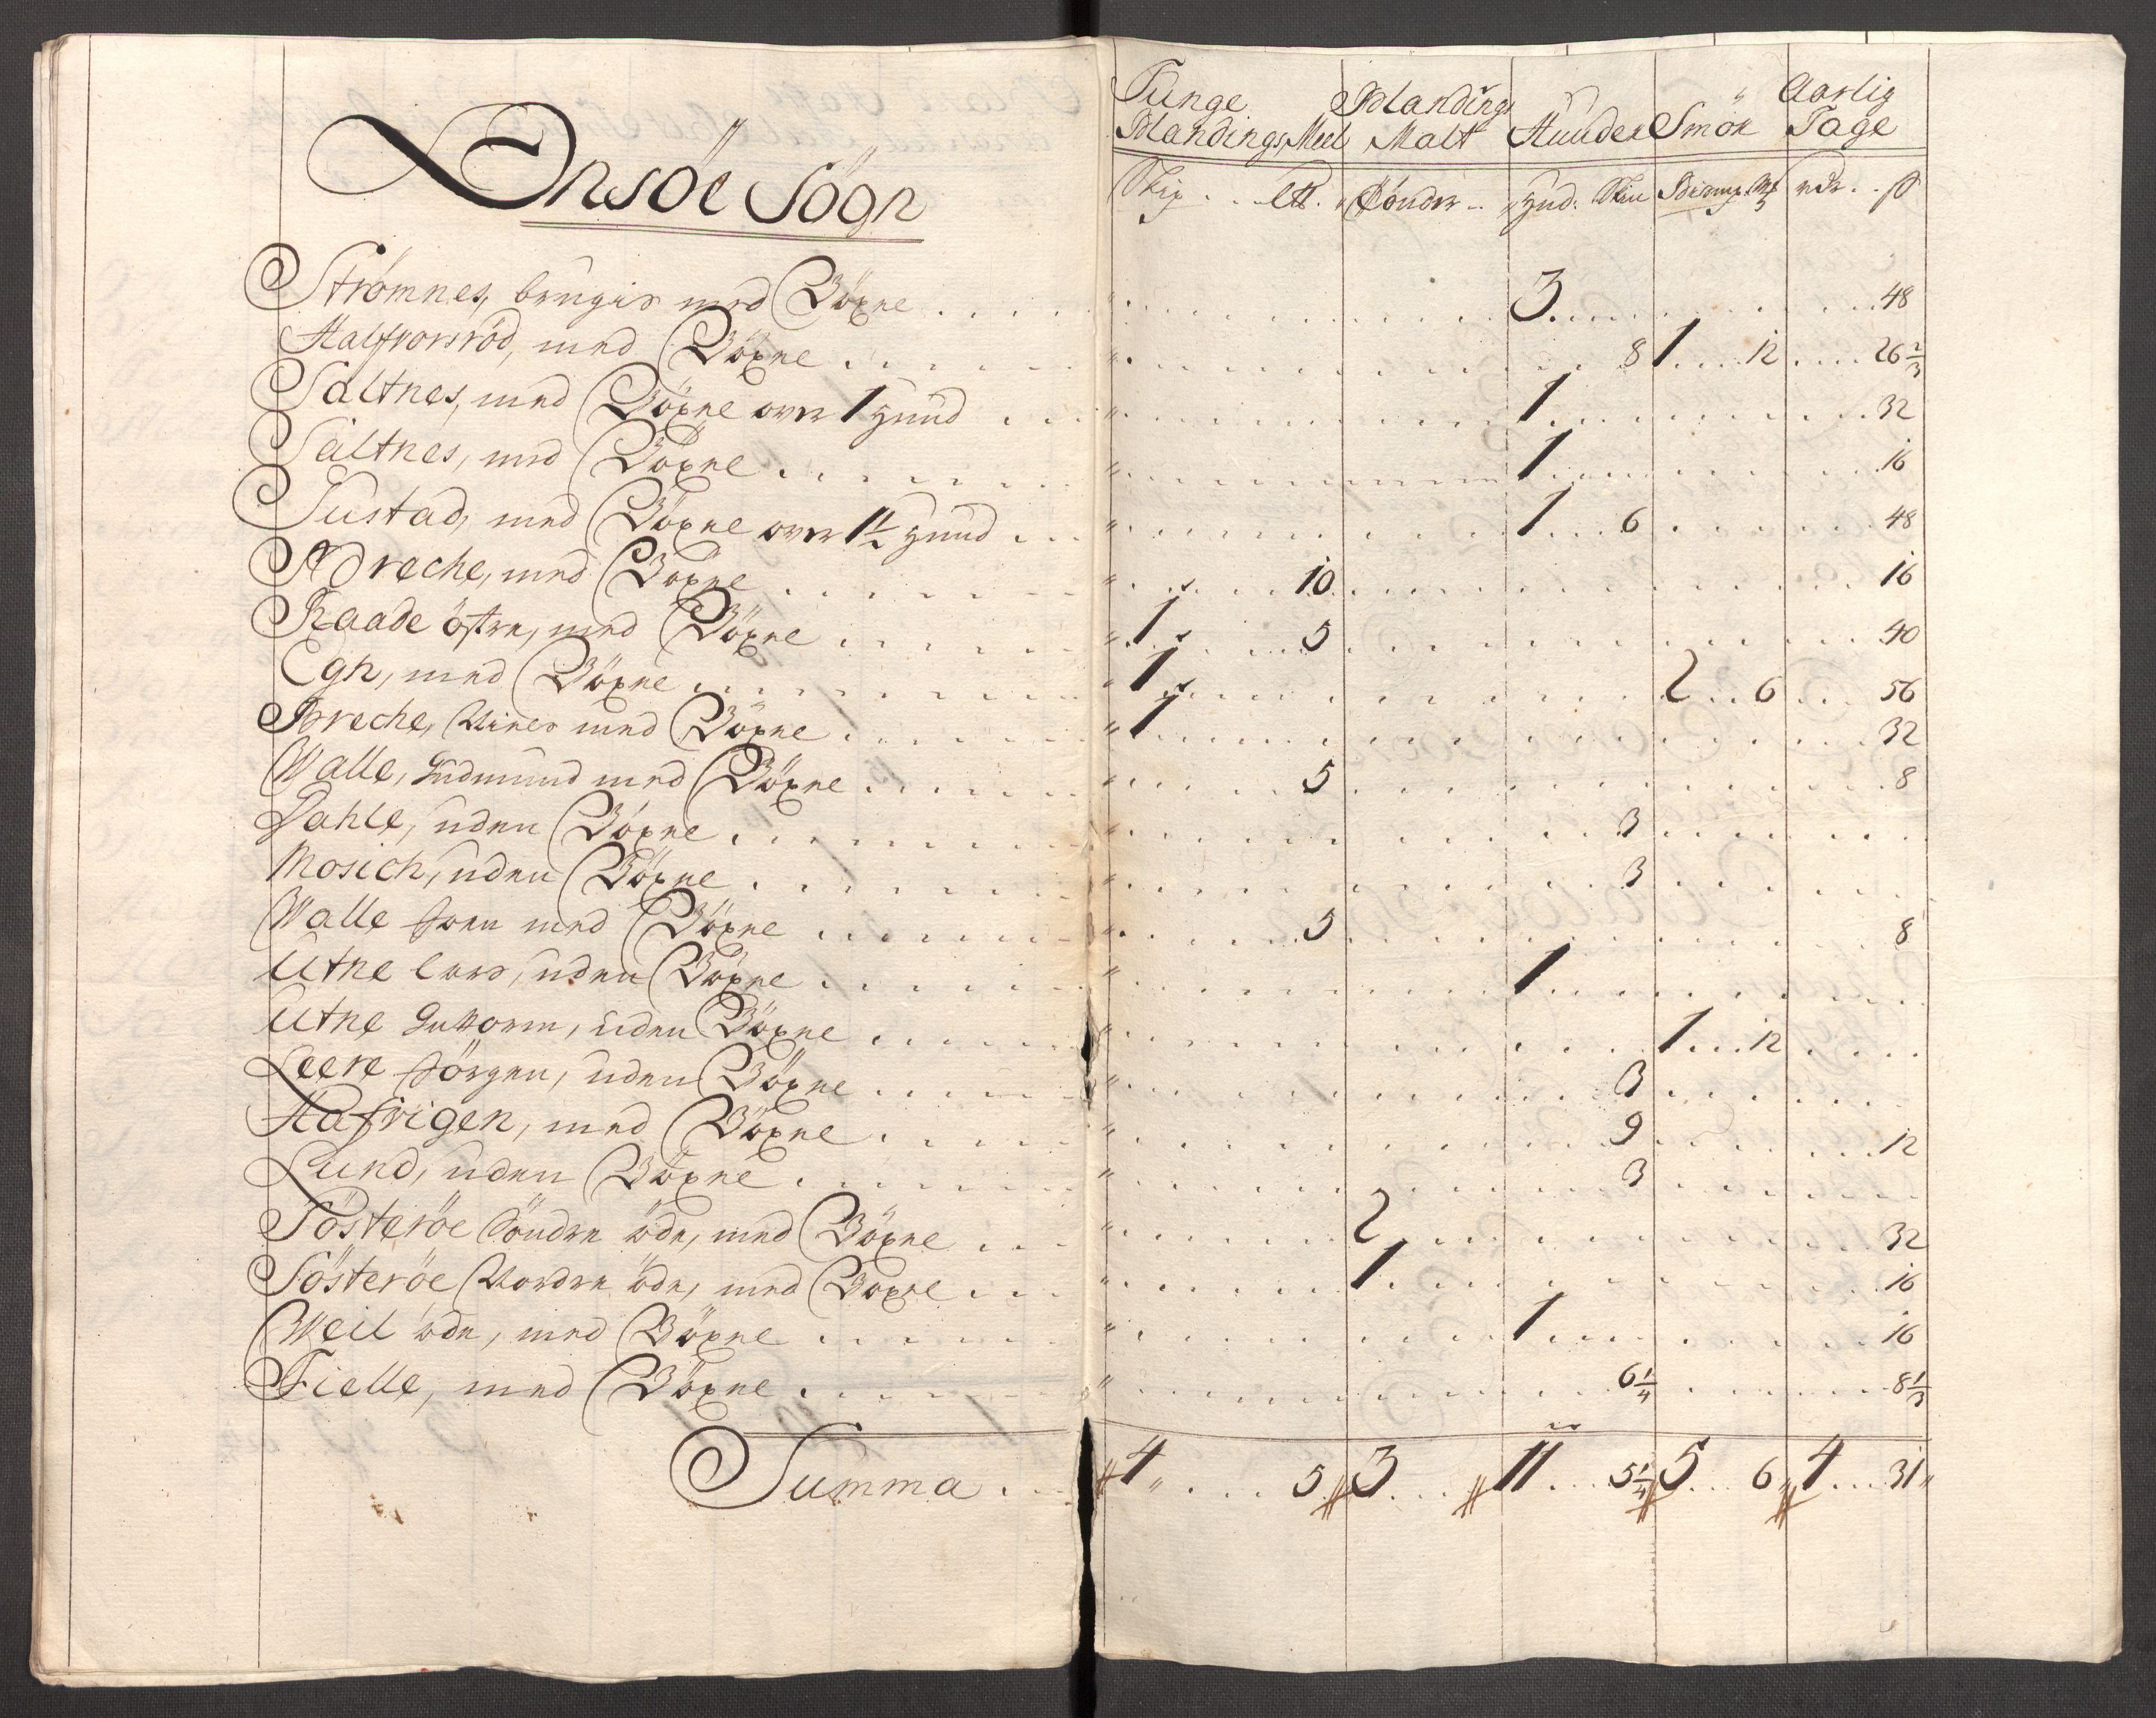 Onsöe Sögn
Tunge Blandings Meel
Blandings Malt
Huuder
Smör
Aarlig Tage
Skip. . . L℔. Tönder . . Hud. Skin Bismp. Mk rdr. . ß
Strömnes, bruger med Böxne . . . . 3. . . . 48
Halfvorsröd, med Böxne . . . . 8 1 . . . 12 . . . . 26 2/3
Saltnes, med Böxne over 1 Hund . . . 1 . . . . 32
Saltnes, med Böxne . . . . 1 . . . . 16
Tustad, med Böxne over 1 1/2 Hund . . . 1 . . . 6 . . . . 48
Adreche, med Böxne . . . . 10 . . . . 16
Raade östre, med Böxne . . . . 1 . . . 5 . . . . 40
Egh, med Böxne . . . . 1 . . . . 2 . . 6 . . . 56
Breche, med Böxne . . . . 1 . . . . 32
Walle, Gudmund med Böxne . . . . 5 . . . . 8
Dahle, uden Böxne . . . . 3 . . . .
Mosich, uden Böxne . . . . 3 . . . .
Walle med Böxne . . . . 5 . . . . 8
Utne Lars, uden Böxne . . . . 1 . . . .
Utne Guttorm, uden Böxne . . . . 1 . . . 12 . . . .
Leere Jörgen, uden Böxne . . . . 3 . . . .
Hafvigen, med Böxne . . . . 9 . . . . 12
Lund, uden Böxne . . . . 3 . . . .
Sösteröe Söndre öde, med Böxne . . . 2 . . . . 32
Sösteröe Nordre öde, med Böxne . . . 1 . . . . 16
Weil öde, med Böxne . . . . 1 . . . . 16
Fielle, med Böxne . . . . 6 1/4 . . . . 8 1/3
Summa . . . 4 " . . . 5 3 . . . 11 . . . 5 1/4 5 . . . 6 " 4 . . . 31 "